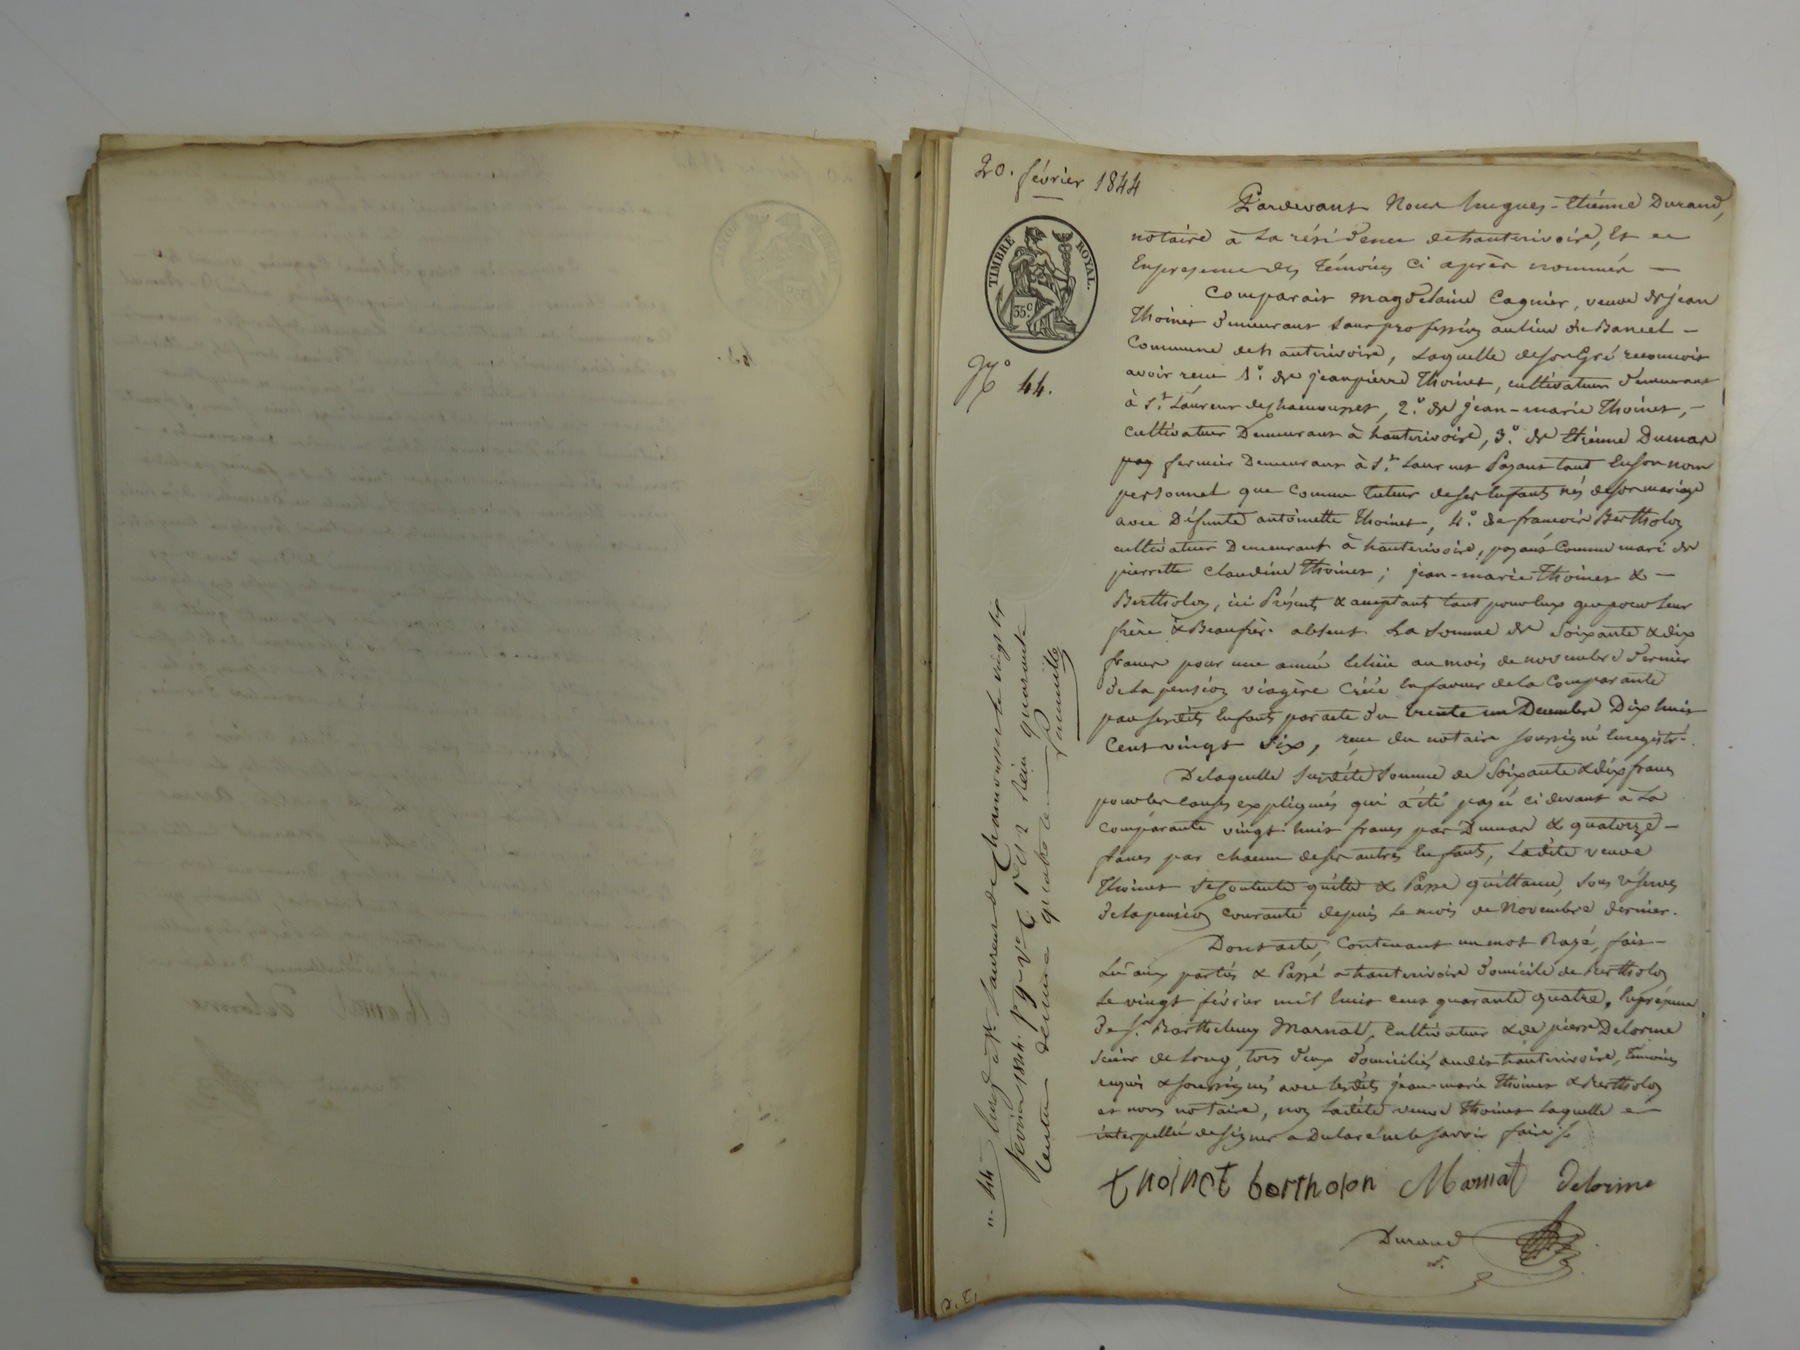 20. février 1844
TIMBRE ROYAL.
35 c
N° 44.
Pardevant Nous hugues-Etienne Durand,
notaire à la résidence de hauterivoire, Et en
En presence des témoins ci après nommés —
Comparait magdelaine Cagnier, veuve de jean
Thoinet demeurant sans profession au lieu du Bancel —
Commune de hauterivoire, laquelle de son Gré reconnoit
avoir reçu 1°. de jean pierre Thoinet, cultivateur demeurant
à St. Laurent de chamousset, 2°. de jean-marie Thoinet, —
cultivateur Demeurant à hauterivoire, 3°. de Etienne Dumas
pay fermier Demeurant à St. Laurent Payant tant En son nom
personnel que comme tuteur de ses Enfants nés de son mariage
avec Défunte antoinette Thoinet, 4°. de francois Bertholon
cultivateur Demeurant à hauterivoire, payant Comme mari de
pierrette claudine Thoinet ; jean-marie Thoinet & —
Bertholon, ici Présents & acceptants tant pour Eux que pour leur
frère & Beaufrère absent. La Somme de Soixante & dix
francs pour une année Echüe au mois de novembre dernier
de la pension viagère Créée En faveur de la Comparante
par sesdits Enfants par acte du trente un Decembre Dix huit
Cent vingt Six, reçu du notaire soussigné Enregistré.
De laquelle susdite Somme de Soixante & dix francs
pour les causes expliquées qui a été payée ci devant à La
comparante vingt huit francs par Dumas & quatorze —
francs par chacun de ses autres Enfants, Ladite veuve
Thoinet se Contente quitte & Passe quittance, Sous réserves
de la pension courante depuis le mois de Novembre dernier.
Dont acte, Contenant un mot Rayé, fait —
Lu aux parties & Passé a hauterivoire domicile de Bertholon
Le vingt février mil huit cent quarante quatre, En présence
de Sr. Barthelemy Marnat, Cultivateur & de pierre Delorme
Scieur de Long, tous deux domiciliés audit hauterivoire, témoins
requis & soussignés avec lesdits jean-marie Thoinet & Bertholon
et nous notaire, non Ladite veuve Thoinet Laquelle en
interpellée de signer a Declaré ne le savoir faire
thoinet bertholon Marnat Delorme
Durand
n. 44 Enreg. à St. Laurent de Chamousset le vingt six
février 1844. f° 9 V° C 1re et 2 Reçu quarante
centimes decime quatre c.